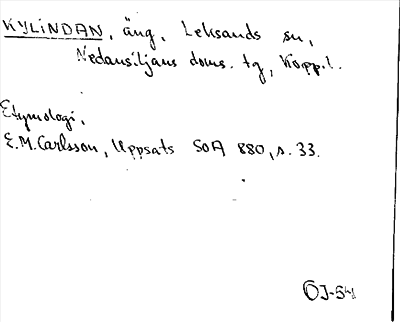 KYLINDAN, äng, Leksands sn,
Nedansiljans doms. tg, Kopp.l.
Etymologi.
E.M. Carlsson, Uppsats SOA 880, s. 33.
ÖJ-54